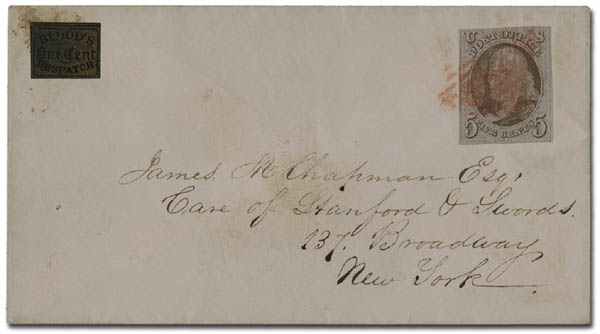 BLOOD'S
One Cent
DESPATCH
U S
POST OFFICE
5 FIVE CENTS. 5
James M Chapman Esq,
Care of Stanford & Swords.
137. Broadway
New York.